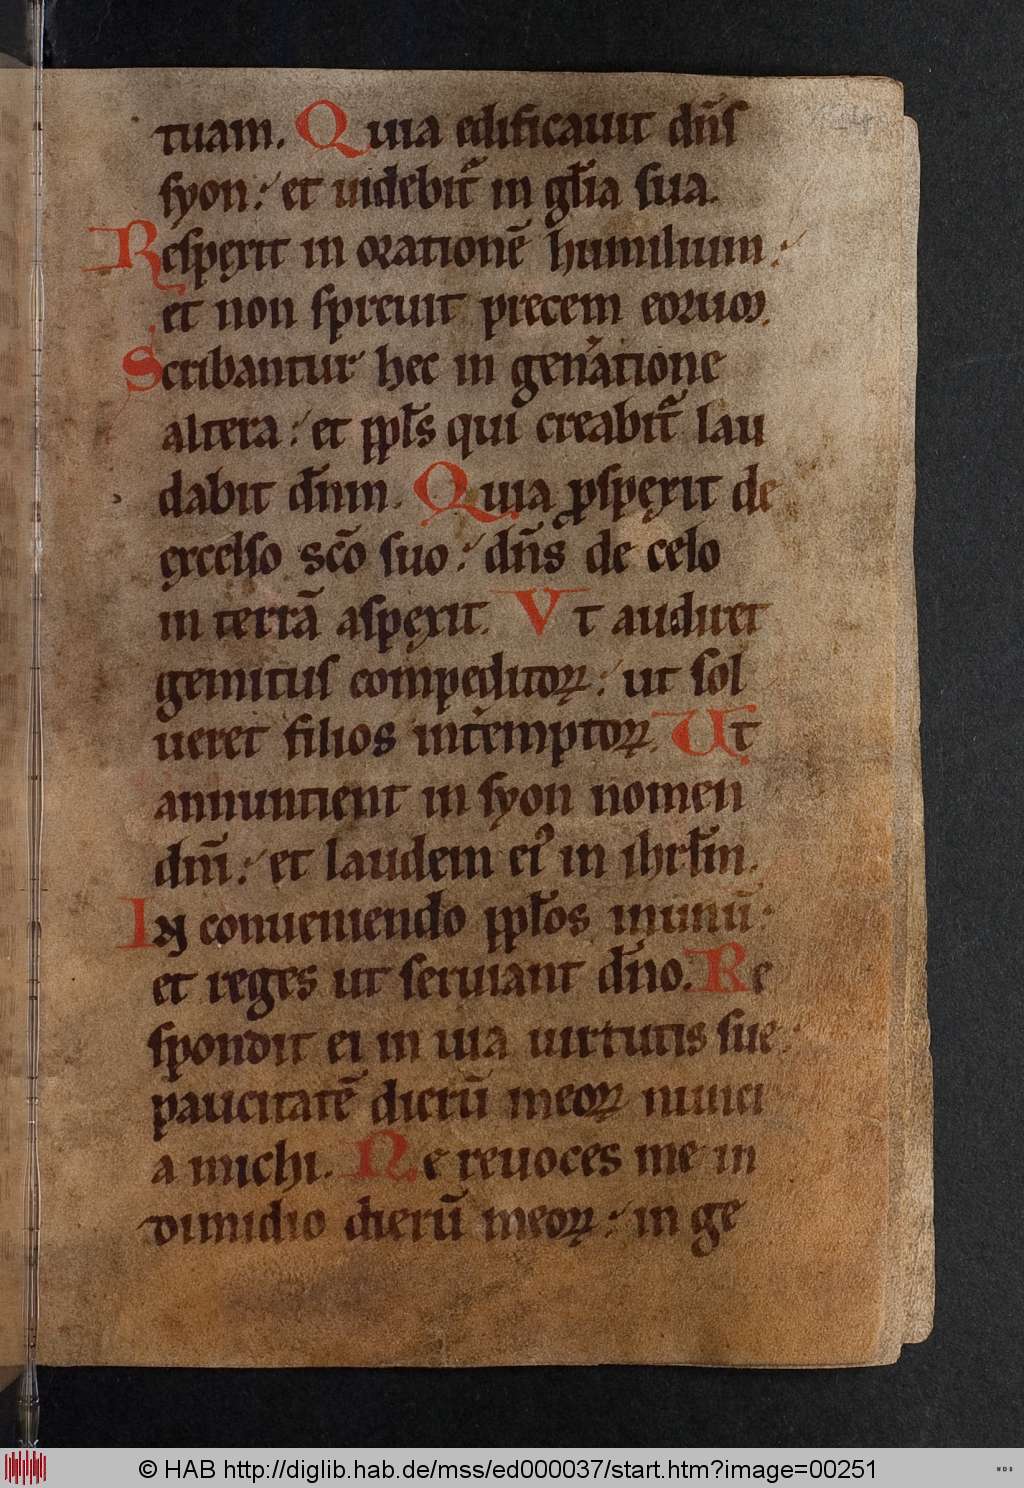 tuam. Quia edificauit dn̄s
syon: et uidebit᷑ in gl̄ia sua.
Respexit in orationē humilium:
et non spreuit precem eorum.
Scribantur hec in gen᷑atione
altera: et ppl̄s qui creabit᷑ lau
dabit dn̄m. Quia ꝓspexit de
excelso sc̄o suo: dn̄s de celo
in terrā aspexit. Vt audiret
gemitus compeditoꝝ: ut sol
ueret filios int᷑emptoꝝ. Ut
annuntient in syon nomen
dn̄i: et laudem eiꝰ in ihrl̄m.
In conueniendo ppl̄os in unū:
et reges ut seruiant dn̄o. Re
spondit ei in uia uirtutis sue:
paucitatē dierū meoꝝ nunci
a michi. Ne reuoces me in
dimidio dierū meoꝝ: in ge
© HAB http://diglib.hab.de/mss/ed000037/start.htm?image=00251